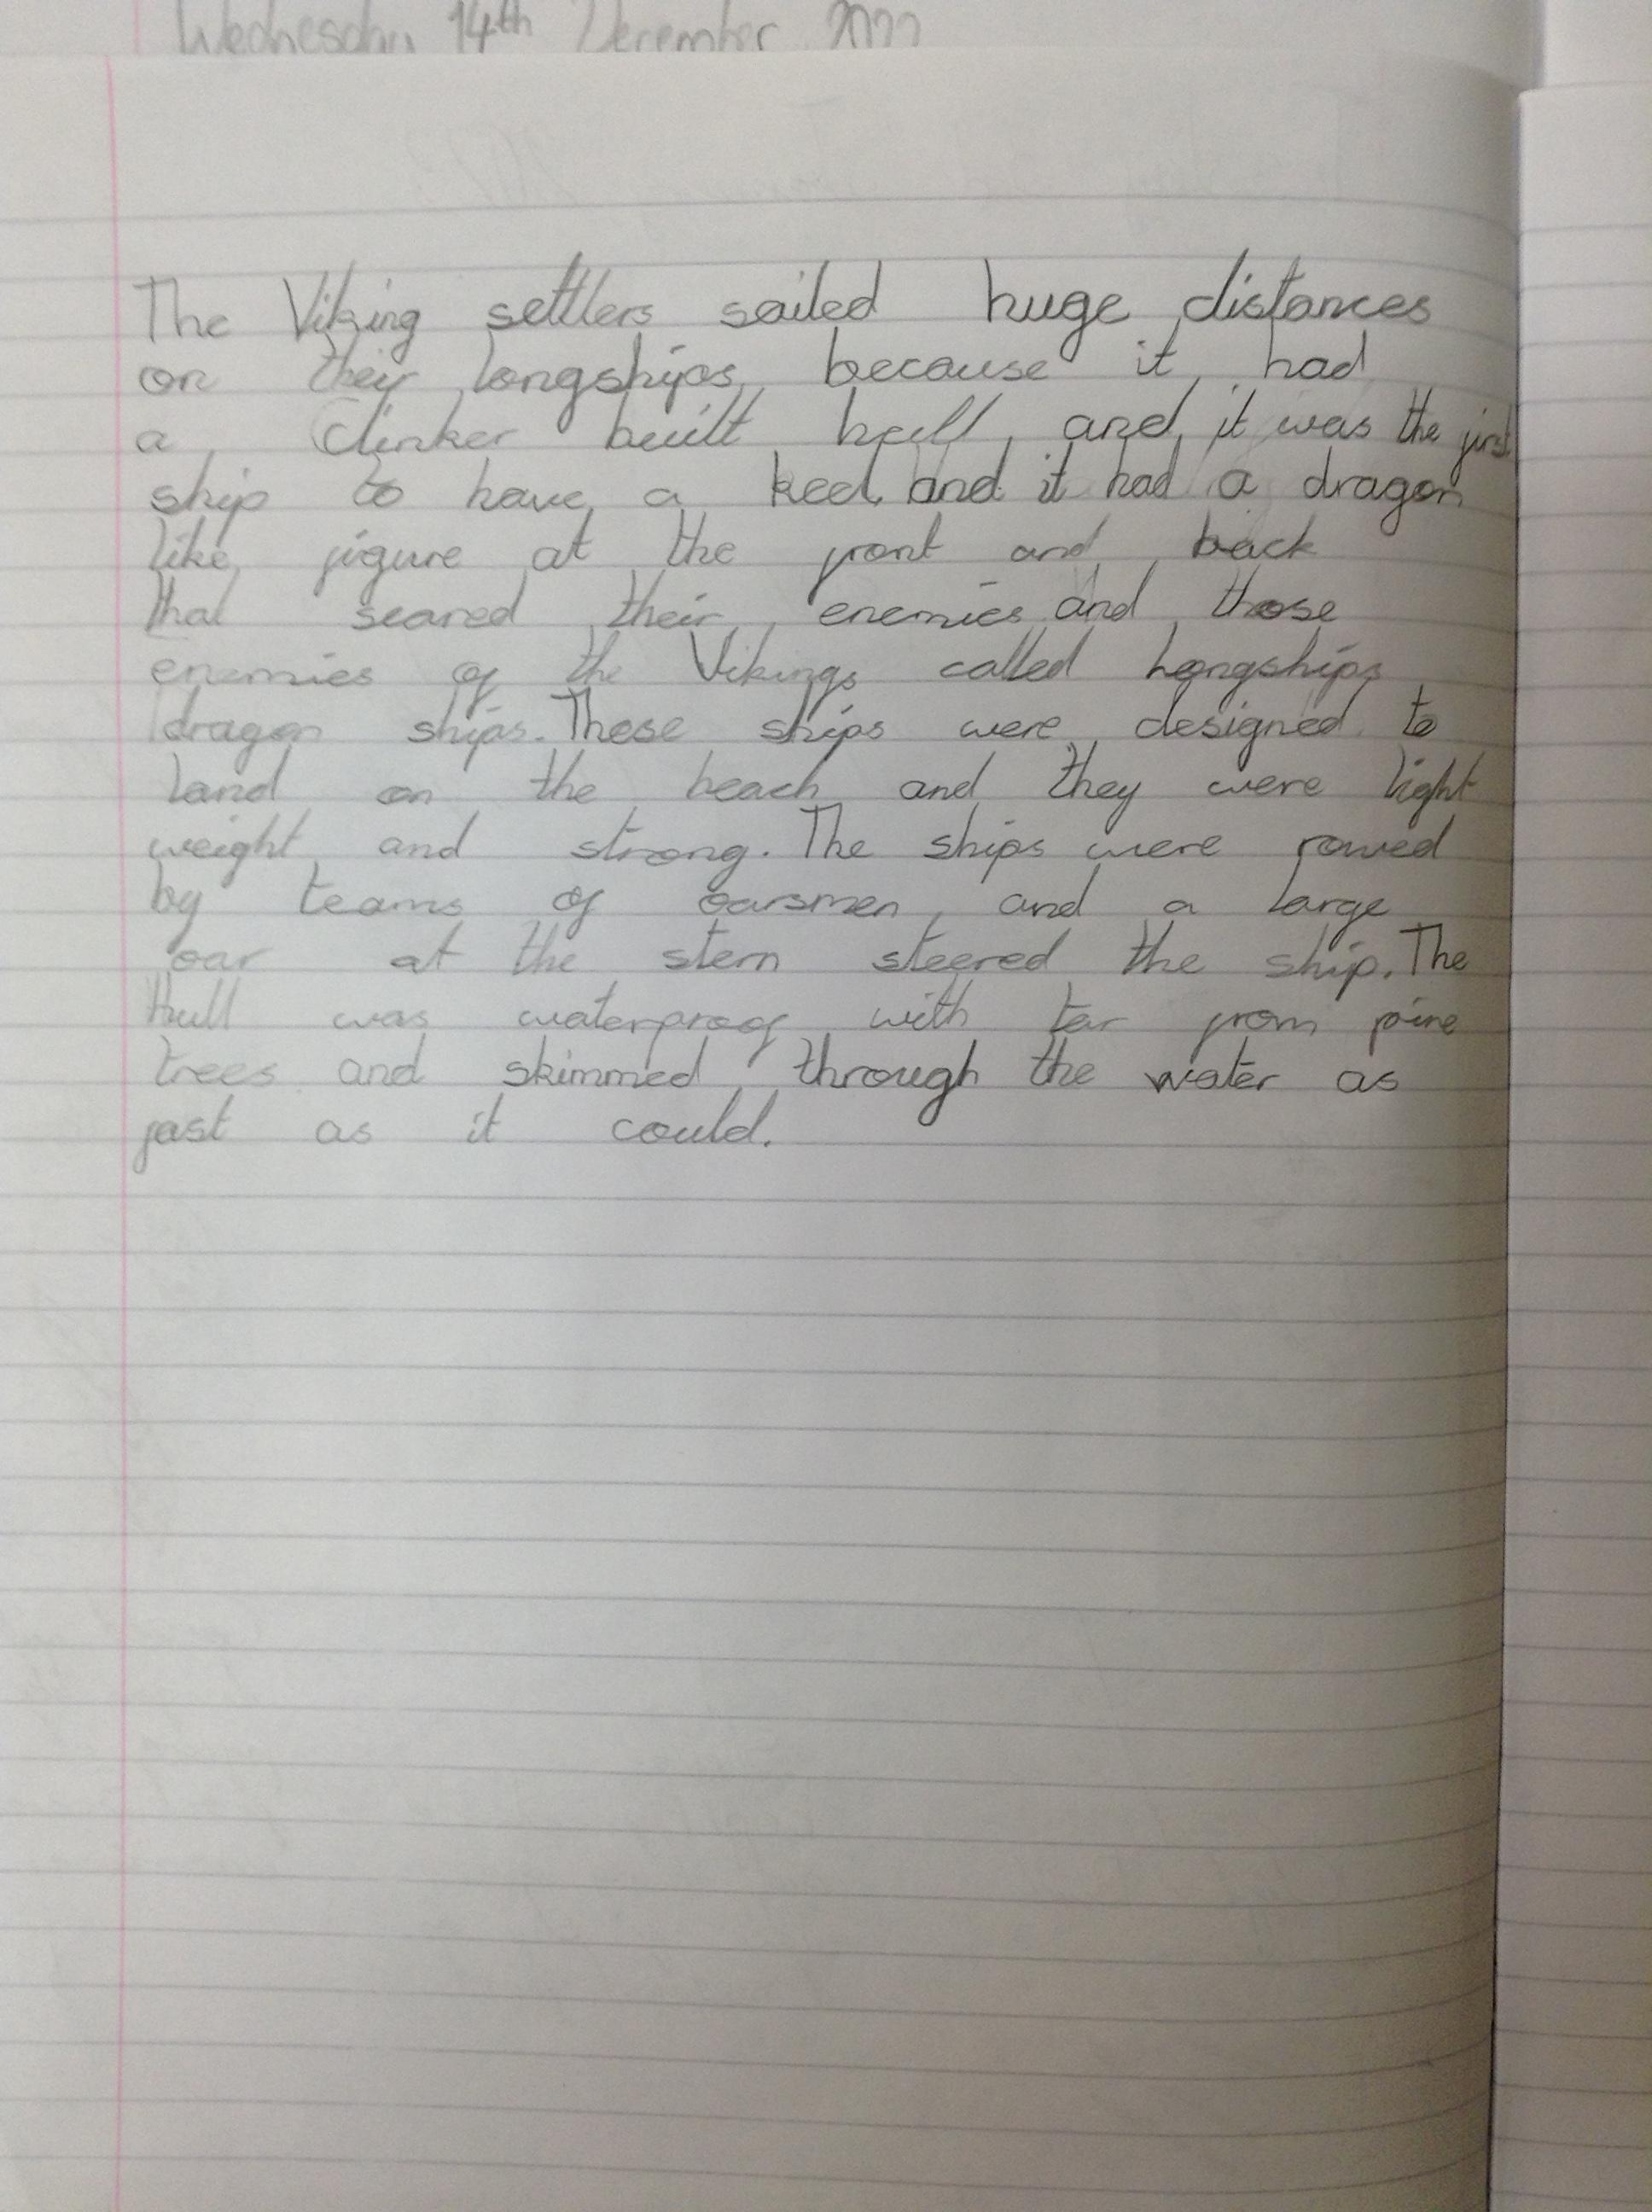 Wednesday 14th December 2022
The Viking settlers sailed huge distances
on their longships, because it had
a clinker built hull, and it was the first
ship to have a keel and it had a dragon
like figure at the front and back
that scared their enemies and those
enemies of the Vikings called longships
dragon ships. These ships were designed to
land on the beach and they were light
weight and strong. The ships were rowed
by teams of oarsmen, and a large
oar at the stern steered the ship. The
Hull was waterproof with tar from pine
trees and skimmed through the water as
fast as it could.